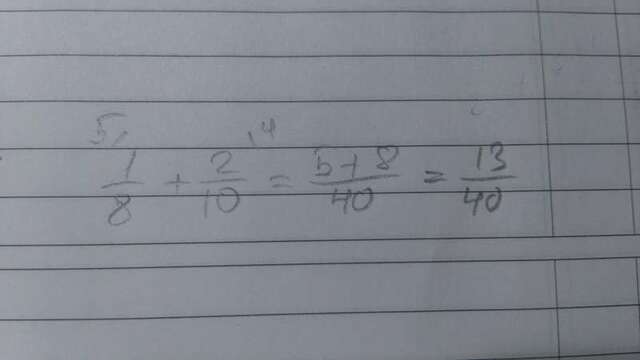 5, ,4
1/8 + 2/10 = 5+8/40 = 13/40